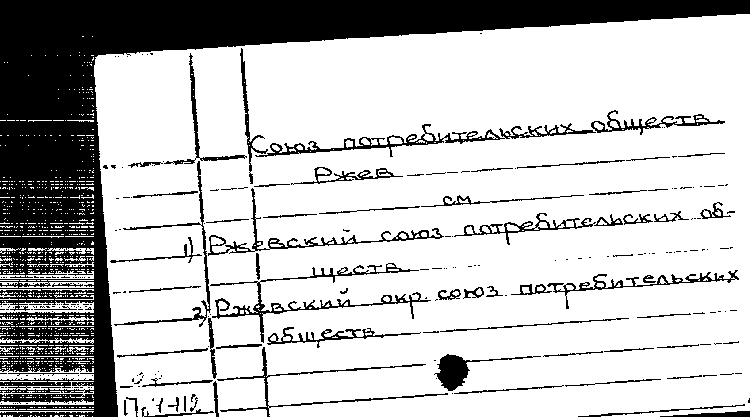 Союз потребительских обществ.
Ржев
см.
1) Ржевский союз потребительских об-
ществ.
2) Ржевский окр. союз потребительских
обществ.